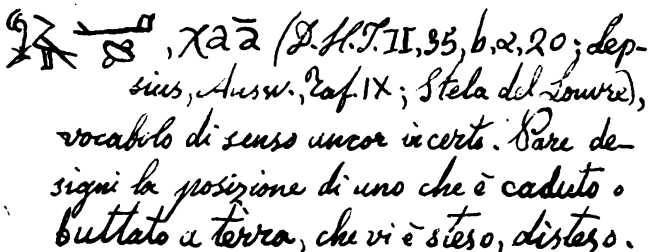 , χaā (D.H.T. II, 35, b, α, 20; Lep-
sius, Ausw., Taf. IX; Stela del Louvre),
vocabolo di senso ancor incerto. Pare de-
signi la posizione di uno che è caduto o
buttato a terra, che vi è steso, disteso.